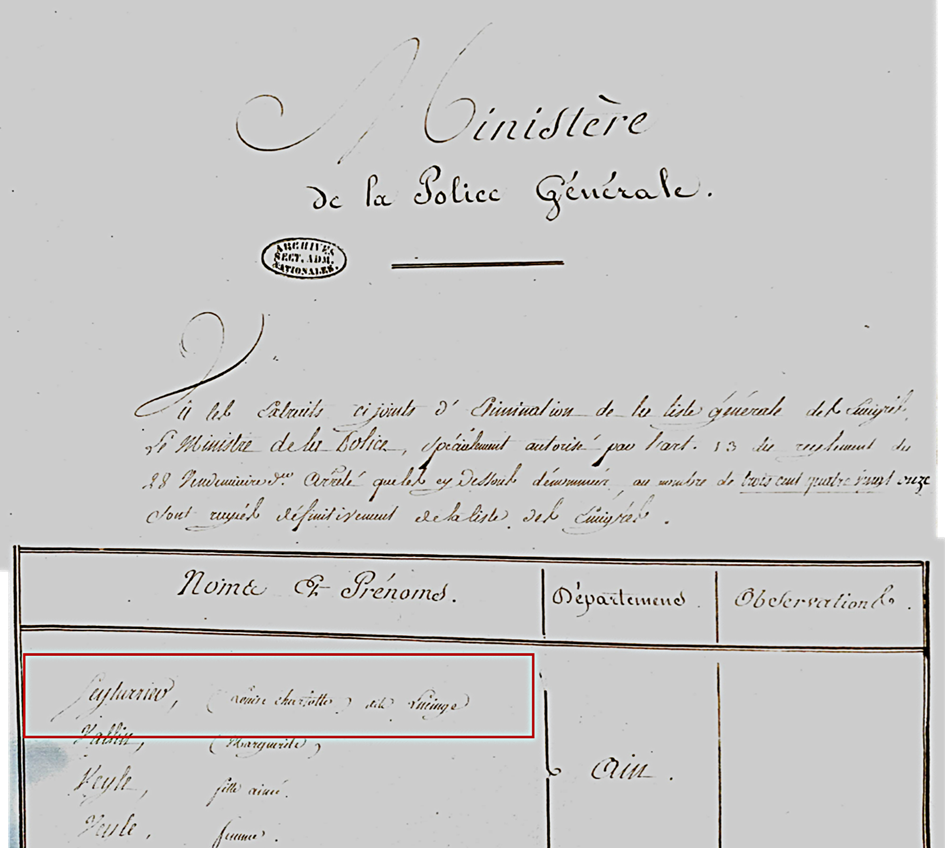 Ministère
de la Police Générale.
ARCHIVES
SECT. ADM.
NATIONALES.
Vu les Extraits cijoints d'Elimination de la liste générale des Emigrés,
Le Ministre de la Police, spécialement autorisé par l'art. 13 du reglement du
28 Vendemiaire d.er Arrêté que les cy dessous dénommés, au nombre de trois cent quatre vingt onze
sont rayés définitivement de la liste des Emigrés.
Noms Et Prénoms. Départemens Observations.
(Louise charlotte) dite Lucinge
(Marguerite)
Veyle, fille ainé. Ain.
Veyle. femme.